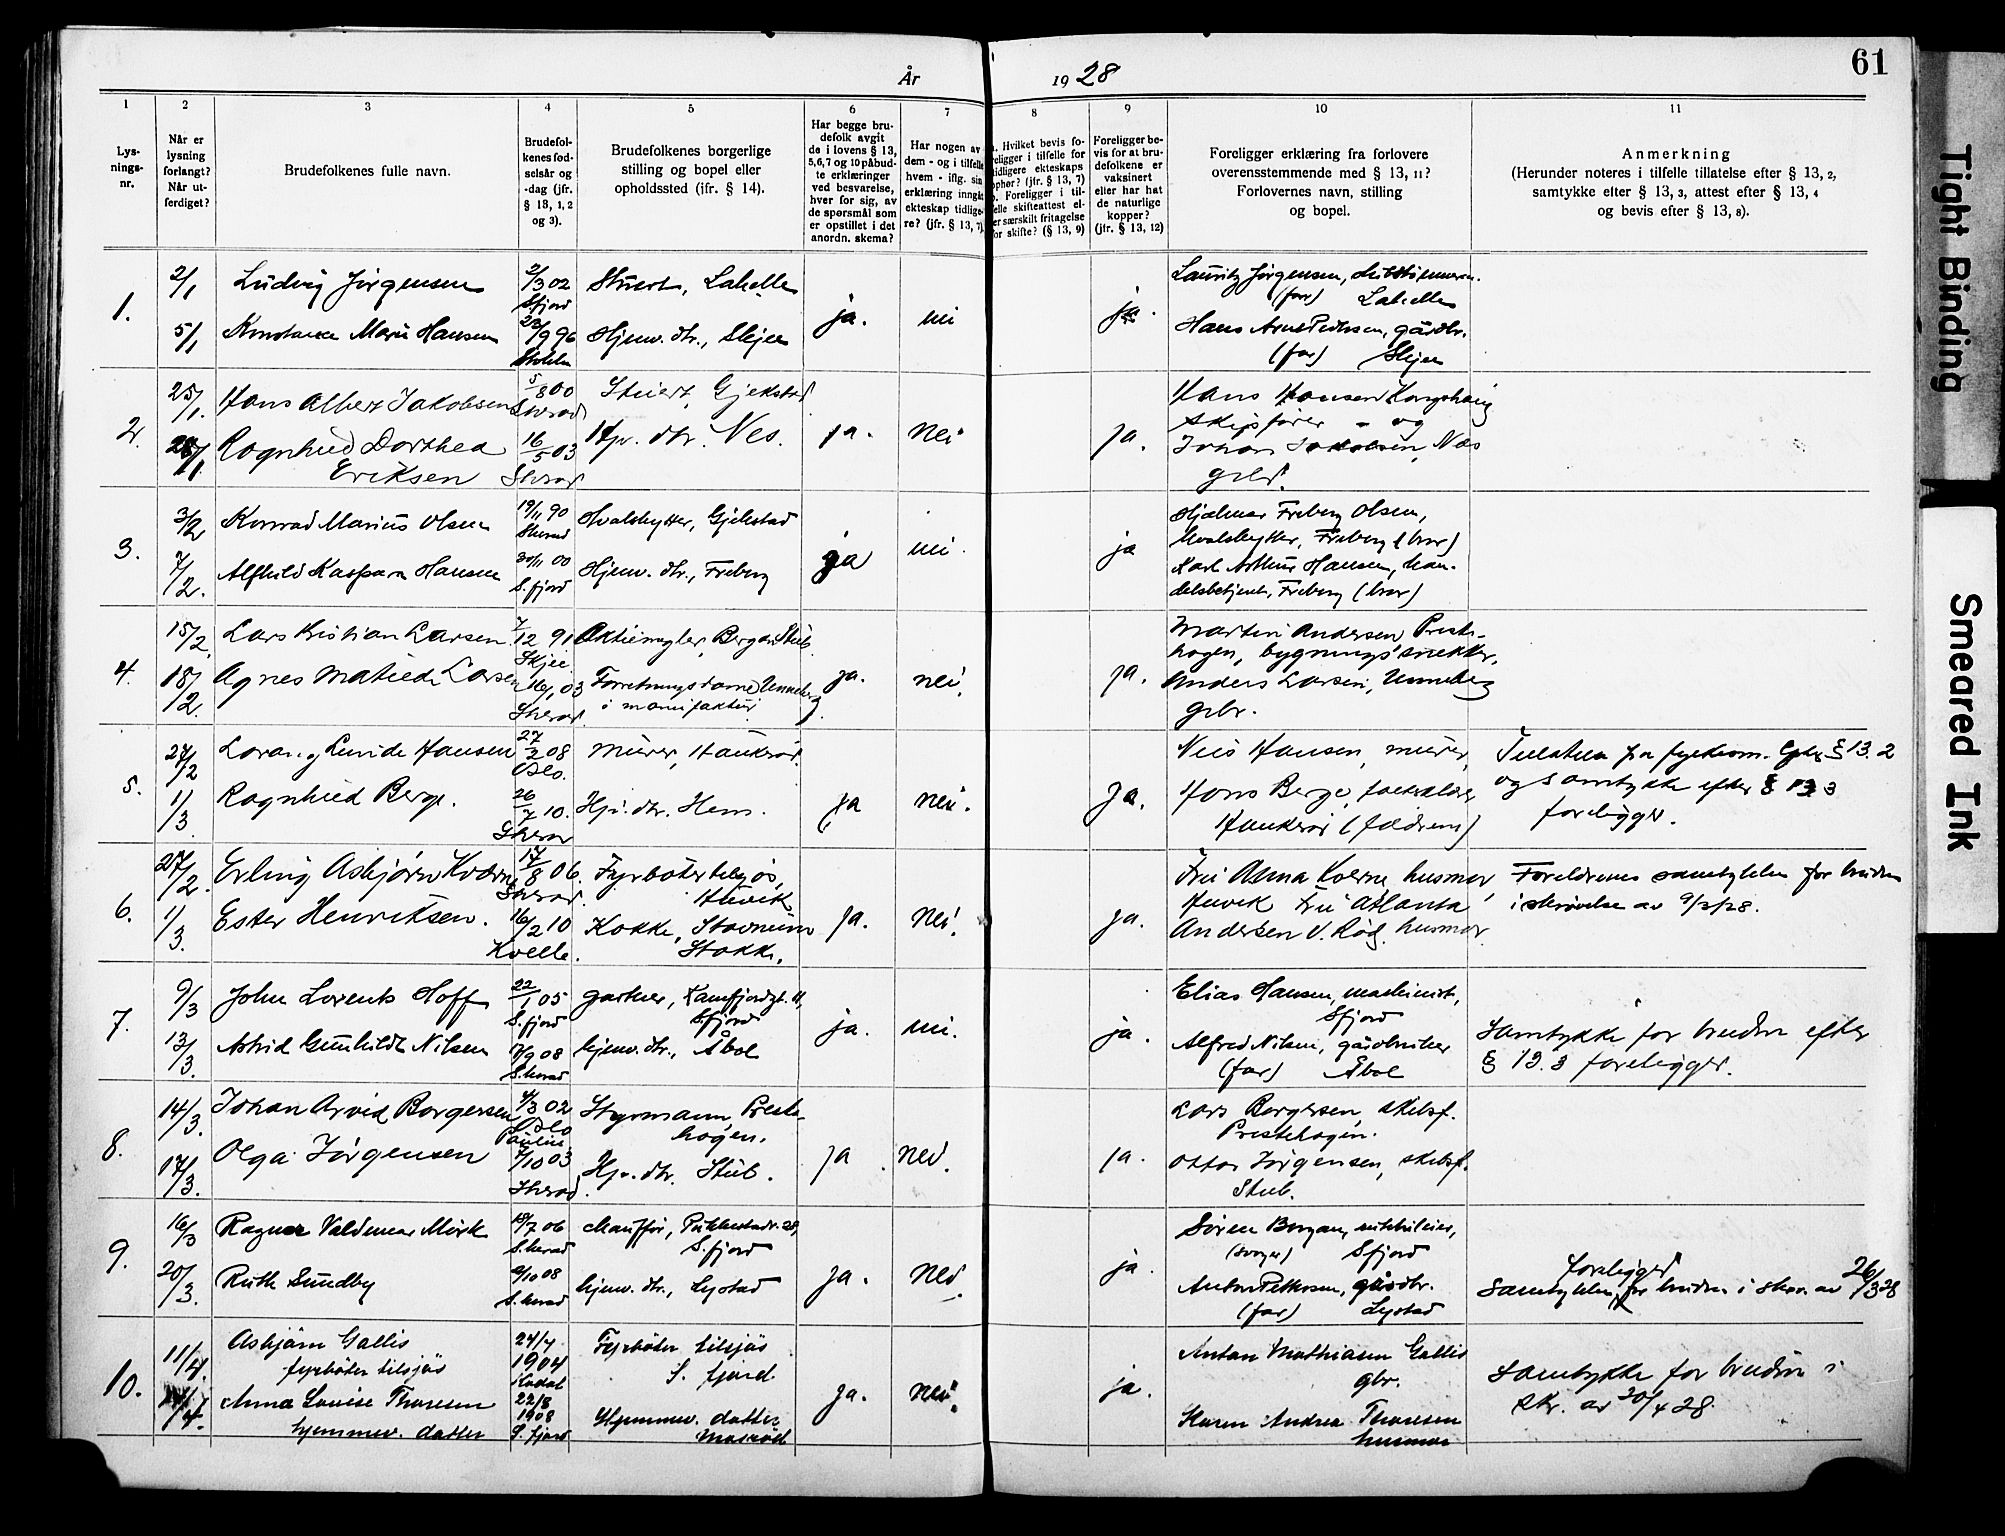 61
År 1928
1 2 3 4 5 6 7 8 9 10 11
Lys-
nings-
nr.
Når er
lysning
forlangt?
Når ut-
ferdiget?
Brudefolkenes fulle navn.
Brudefol-
kenes fød-
selsår og
-dag (jfr.
§ 18, 1, 2
og 3).
Brudefolkenes borgerlige
stilling og bopel eller
opholdssted (jfr. § 14).
Har begge bru-
defolk avgit
de i lovens § 13,
5,6,7 og 10 påbud-
te erklæringer
ved besvarelse,
hver for sig, av
de spørsmål som
er opstillet i det
anordn. skema?
Har nogen av
dem - og i tilfelle
hvem - iflg. sin
erklæring inngått
ekteskap tidlige-
re? (jfr. § 13, 7).
a. Hvilket bevis fo-
religger i tilfelle for
tidligere ekteskaps
ophør? (jfr. § 13, 7)
b. Foreligger i til-
felle skifteattest el-
ler særskilt fritagelse
for skifte? (§ 13, 9)
Foreligger be-
vis for at bru-
defolkene er
vaksinert
eller har hat
de naturlige
kopper?
(jfr. § 13, 12)
Foreligger erklæring fra forlovere
overensstemmende med § 13, 11?
Forlovernes navn, stilling
og bopel.
Anmerkning
(Herunder noteres i tilfelle tillatelse efter § 13, 2,
samtykke efter § 13, 3, attest efter § 13, 4
og bevis efter § 13, 8).
1. 2/1 Ludvig Jørgensen 2/3 02 Stuert, Lahelle ja. nei ja. Lauritz Jørgensen,
Sfjord (far) Lahelle
5/1 Marie Hansen 22/9 96 Hjemv. dtr., Skjee Hans Arnt Pedersen, gårdbr.
(far) Skjee
2. 25/1. Hans Albert Jakobsen 5/8 00 Stuert, Gjekstad ja. nei ja. Hans Hansen
Sherad Skipsfører og
Ragnhild Dorthea 16/5 03 Hjv. dtr. Nes. Johan Jakobsen, Nes
Eriksen Sherad gbr.
3. 3/2 Konrad Marius Olsen 19/11 90 Hvalskytter, Gjekstad ja nei. ja Hjalmar Freberg Olsen,
Sherad Hvalskytter, Freberg (bror)
7/2. Alfhild Kaspara Hansen 30/11 00 Hjemv. dtr., Freberg Karl Arthur Hansen, han-
S.fjord delsbetjent, Freberg (bror)
4. 15/2. Lars Kristian Larsen 7/12 91. Aktiemegler, Bergan Stub. ja. nei. ja. Martin Andersen Preste-
Skjee hagen, bygningssnekker,
18/2. Agnes Matilde Larsen 16/1 03 Forretningsdame Unneberg Anders Larsen, Unneberg
Sherad. i manufaktur gbr.
5. 27/2 Hansen 27/2 08 Murer, Haukerød. ja nei. ja. Nils Hansen, murer, Tillatelse fra fylkesm. efter § 13. 2
Oslo. og samtykke efter § 13 3
1/3. Ragnhild Berge. 26/7 10. Hjv. dtr. Hem. Hans Berge, foreligger.
Sherad Haukerød (fædrene)
6. 27/2. Erling Asbjørn Kværne 17/8 06. Fyrbøter tilsjøs, ja. nei. ja. Fru Anna Kværne husmor, Foreldrenes samtykke for bruden
Sherad. Huvik Huvik Fru Atlanta i skrivelse av 9/2/28.
1/3. Ester Henriksen. 16/2 10 Kokke, Stavnum Andersen V. Rød. husmor.
Kvelle. Stokke.
7. 9/3 John Lorents Hoff 22/1 05 gartner, Kamfjordgt. 11, ja. nei. ja. Elias Hansen, maskinist,
S.fjord Sfjord Sfjord
13/3. Astrid Gunhildt Nilsen 17/9 08 hjemv. dtr., Åbol Alfred Nilsen, gårdbruker Samtykke for bruden efter
S.herad (far) Åbol § 13. 3 foreligger.
8. 14/3. Johan Arvid Borgersen 4/3 02 Styrmann, Preste- ja. nei. ja. Lars Borgersen, skibsf.
Oslo hagen. Prestehagen.
17/3. Olga Pauline Jørgensen 7/10 03 Hjv. dtr. Stub. Ottar Jørgensen, skibsf.
Sherad. Stub.
9. 16/3 Ragnar Valdemar Mørk 18/7 06 chauffør, ja. nei. ja. Søren Bergan,
S.herad S.fjord (svoger) Sfjord foreligger
20/3. Ruth Sundby 9/10 08 hjemv. dtr., Lystad Anton Pettersen, gårdbr. Samtykke for bruden i skriv. av 26/3 28
S.herad (far) Lystad
10. 11/4. Asbjørn Gallis 24/4 Fyrbøter tilsjøs ja. nei. ja. Anton Mathiasen Gallis
fyrbøter tilsjøs 1904 S. fjord gbr. Samtykke for bruden i
Kodal skr. av 30/4 28.
14/4. Anna Lovise Thoresen 22/8 Hjemmev. datter Karen Andrea Thoresen
hjemmev. datter 1908 Mosrød husmor
S. fjord
Tight Binding
Smeared Ink